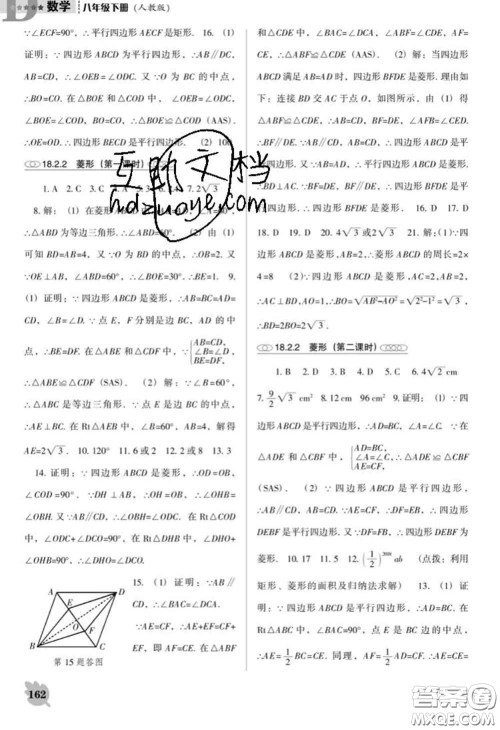 ★★★★★ 数学 八年级下册 (人教版)
∵∠ECF=90°,∴平行四边形 AECF 是矩形. 16. (1)
证明:∵四边形 ABCD 为平行四边形,∴AB∥DC,
AB=CD,∴∠OEB=∠ODC. 又∵O 为 BC 的中点,
∴BO=CO. 在△BOE 和△COD 中, ∠OEB=∠ODC,
∠BOE=∠COD, BO=CO, ∴△BOE≌△COD (AAS).
∴OE=OD. ∴四边形 BECD 是平行四边形. (2) 100
18.2.2 菱形(第一课时)
1. A 2. C 3. 7. 2√3
8. 解:(1)在菱形
∴△ABD 为等边三角形. ∴∠ABD=60°. (2) 由 (1)
可知 BD=AB=4, 又∵O 为 BD 的中点, ∴OB=2. 又
∵OE⊥AB, ∠ABD=60°, ∴∠BOE=30°. ∴BE=1. 9.
(1) 证明:∵四边形 ABCD 是菱形, ∴AB=BC=AD=
CD, ∠B=∠D. ∵点 E, F 分别是边 BC, AD 的中
点, ∴BE=DF. 在△ABE 和△CDF 中, ∵{AB=CD, ∠B=∠D, BE=DF,
∴△ABE≌△CDF (SAS). (2) 解:∵∠B=60°,
∴△ABC 是等边三角形. ∵点 E 是边 BC 的中点,
∴AE⊥BC. 在 Rt△AEB 中, ∠B=60°, AB=4, 解得
AE=2√3. 10. 120° 11. 6 或 2 12. 2 或 8 13. 3
14. 证明:∵四边形 ABCD 是菱形, ∴OD=OB,
∠COD=90°. ∵DH⊥AB, ∴OH=OB, ∴∠OHB=
∠OBH. 又∵AB∥CD, ∴∠OBH=∠ODC. 在 Rt△COD
中, ∠ODC+∠DCO=90°. 在 Rt△DHB 中, ∠DHO+
∠OHB=90°, ∴∠DHO=∠DCO.
15. (1) 证明:∵AB∥
CD, ∴∠BAC=∠DCA.
∵AE=CF, ∴AE+EF=CF+
EF, 即 AF=CE. 在△ABF
A D E O F B C
第 15 题答图
162
和△CDE 中, ∠BAC=∠DCA, ∠ABF=∠CDE, AF=
CE, ∴△ABF≌△CDE (AAS). (2) 解:当四边形
ABCD 满足 AB=AD 时, 四边形 BFDE 是菱形. 理由如
下:连接 BD 交 AC 于点 O, 如图所示, 由 (1) 得
△ABF≌△CDE, ∴AB=CD, BF=DE, ∠AFB=∠CED.
∴BF∥DE. ∵AB∥CD, AB=CD, ∴四边形 ABCD 是平
行四边形. 又∵AB=AD, ∴平行四边形 ABCD 是菱形.
∴BD⊥AC. ∵BF=DE, BF∥DE, ∴四边形 BFDE 是平
行四边形. ∴四边形 BFDE 是菱形. 16. D 17. D
18. D 19. D 20. 4√3 或 2√3 21. 解:(1)∵四
边形 ABCD 是菱形, AB=2, ∴菱形 ABCD 的周长=2×
4=8 (2)∵四边形 ABCD 是菱形, AC=2, AB=2,
∴AC⊥BD, AO=1, ∴BO=√(AB²−AO²)=√(2²−1²)=√3,
∴BD=2BO=2√3.
18.2.2 菱形(第二课时)
1. B 2. D 3. C 4. D 5. C 6. 4√2 cm
7. 9/2 √3 cm² 8. 12 cm 96 cm² 9. 证明:(1) ∵四
边形 ABCD 是平行四边形, ∴AD=BC, ∠A=∠C. ∵在
△ADE 和△CBF 中, {AD=BC, ∠A=∠C, AE=CF, ∴△ADE≌△CBF
(SAS). (2) ∵四边形 ABCD 是平行四边形,
∴AB∥CD, AB=CD. ∵AE=CF, ∴DF=EB, ∴四边形
DEBF 是平行四边形. 又∵DF=FB, ∴四边形 DEBF 为
菱形. 10. 17 11. 5 12. (1/2) ab (点拨:利用
矩形、菱形的面积及归纳法求解) 13. (1) 证
明:∵四边形 ABCD 是平行四边形, ∴AD=BC. 在
Rt△ABC 中, ∠BAC=90°, 点 E 是 BC 边的中点,
∴AE=1/2 BC=CE. 同理, AF=1/2 AD=CF. ∴AE=CE=
互助文档
hdzuoye.com
答案圈
MXQE.COM